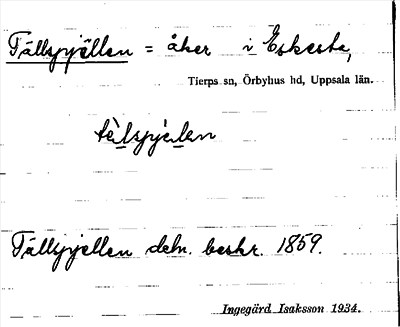 Tällspjällen = åker i Eskesta,
Tierps sn, Örbyhus hd, Uppsala län.
tè̀lspjælen
Tällspjellen deln. beskr. 1859.
Ingegärd Isaksson 1934.